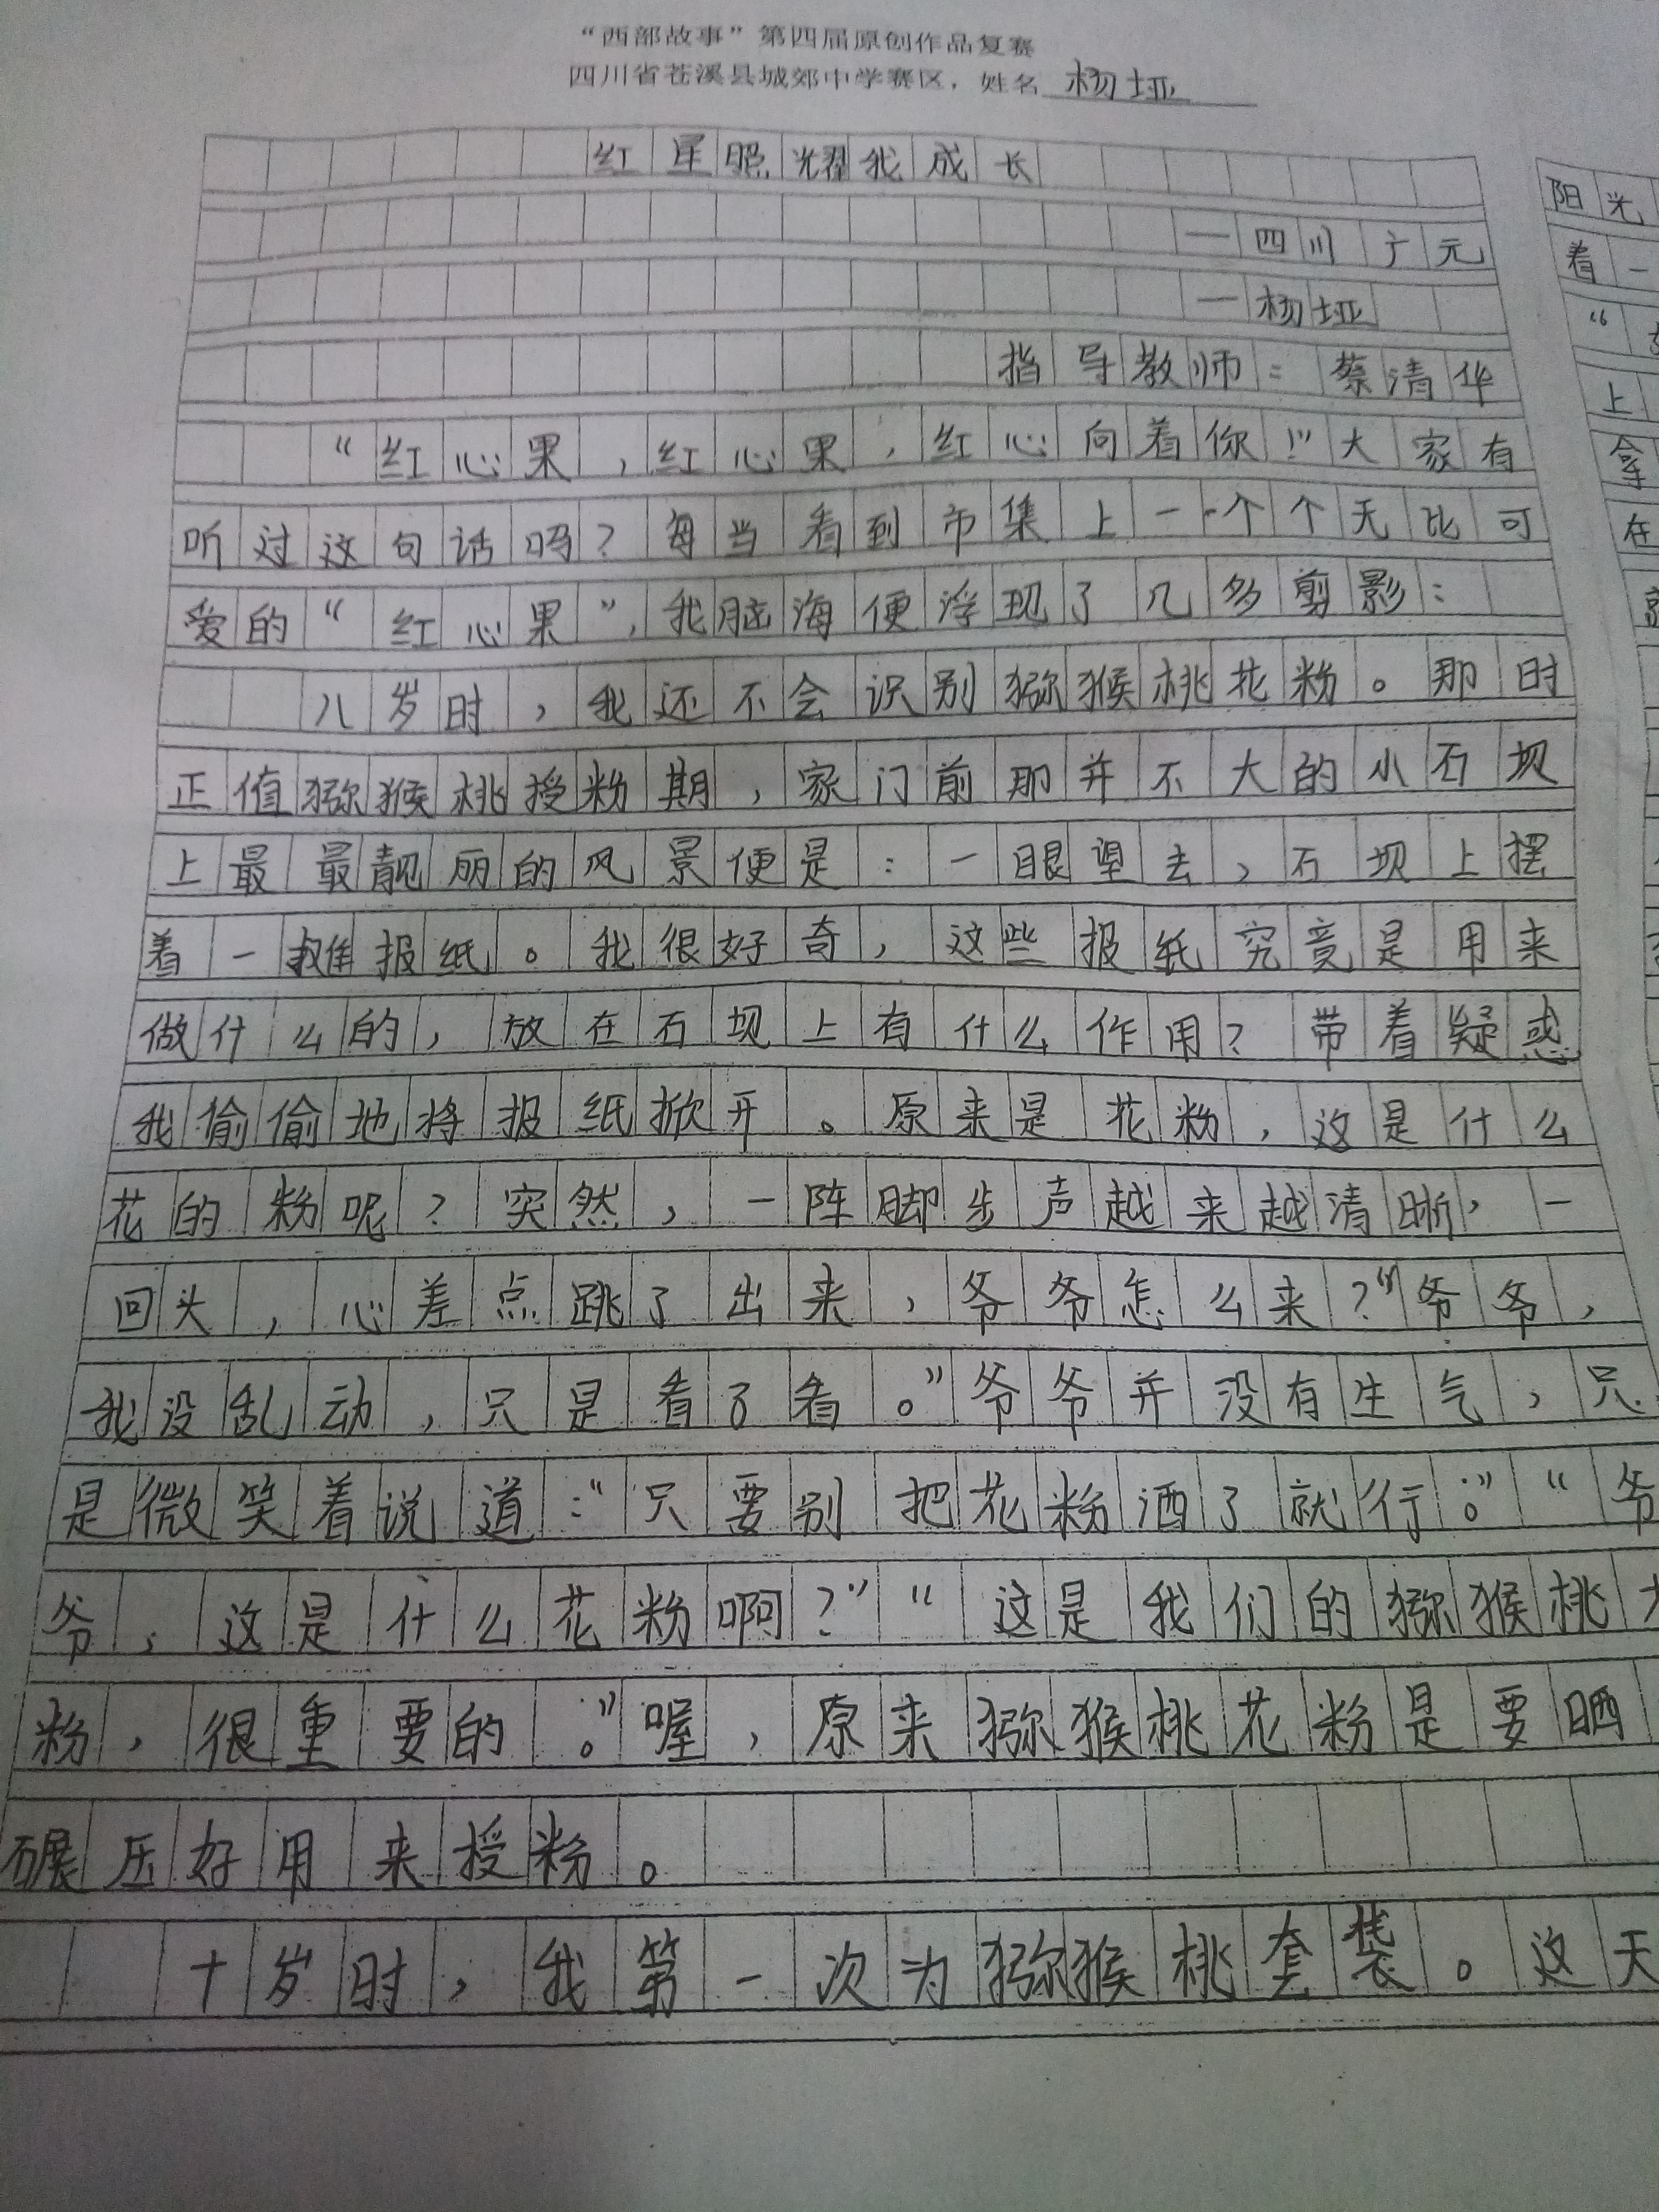 “西部故事”第四届原创作品复赛
四川省苍溪县城郊中学赛区，姓名 杨垭
红星照耀我成长
—四川广元
—杨垭
指导教师：蔡清华
“红心果，红心果，红心向着你！”大家有
听过这句话吗？每当看到市集上一个个无比可
爱的“红心果”，我脑海便浮现了几多剪影：
八岁时，我还不会识别猕猴桃花粉。那时
正值猕猴桃授粉期，家门前那并不大的小石坝
上最最靓丽的风景便是：一眼望去，石坝上摆
着一摊报纸。我很好奇，这些报纸究竟是用来
做什么的，放在石坝上有什么作用？带着疑惑
我偷偷地将报纸掀开。原来是花粉，这是什么
花的粉呢？突然，一阵脚步声越来越清晰，一
回头，心差点跳了出来，爷爷怎么来？“爷爷，
我没乱动，只是看了看。”爷爷并没有生气，只
是微笑着说道：“只要别把花粉洒了就行。”“爷
爷，这是什么花粉啊？”“这是我们的猕猴桃
粉，很重要的。”喔，原来猕猴桃花粉是要晒
碾压好用来授粉。
十岁时，我第一次为猕猴桃套袋。这天
阳光
着一
“
上
拿
在